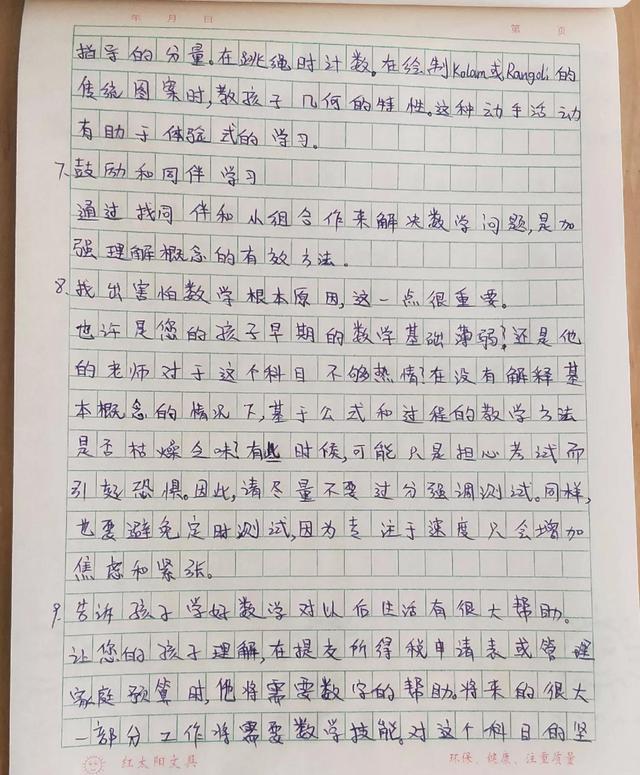 年 月 日
第 页
指导的分量。在跳绳时计数。在绘制Kolam或Rangoli的
传统图案时,教孩子几何的特性。这种动手活动
有助于体验式的学习。
7.鼓励和同伴学习
通过找同伴和小组合作来解决数学问题,是加
强理解概念的有效方法。
8.找出害怕数学根本原因,这一点很重要。
也许是您的孩子早期的数学基础薄弱?还是他
的老师对于这个科目不够热情?在没有解释基
本概念的情况下,基于公式和过程的教学方法
是否枯燥乏味?有些时候,可能只是担心考试而
引起恐惧。因此,请尽量不要过分强调测试。同样,
也要避免定时测试,因为专注于速度只会增加
焦虑和紧张。
9.告诉孩子学好数学对以后生活有很大帮助。
让您的孩子理解,在提交所得税申请表或管理
家庭预算时,他将需要数字的帮助。将来的很大
一部分工作将需要数学技能。对这个科目的坚
红太阳文具
环保、健康、注重质量